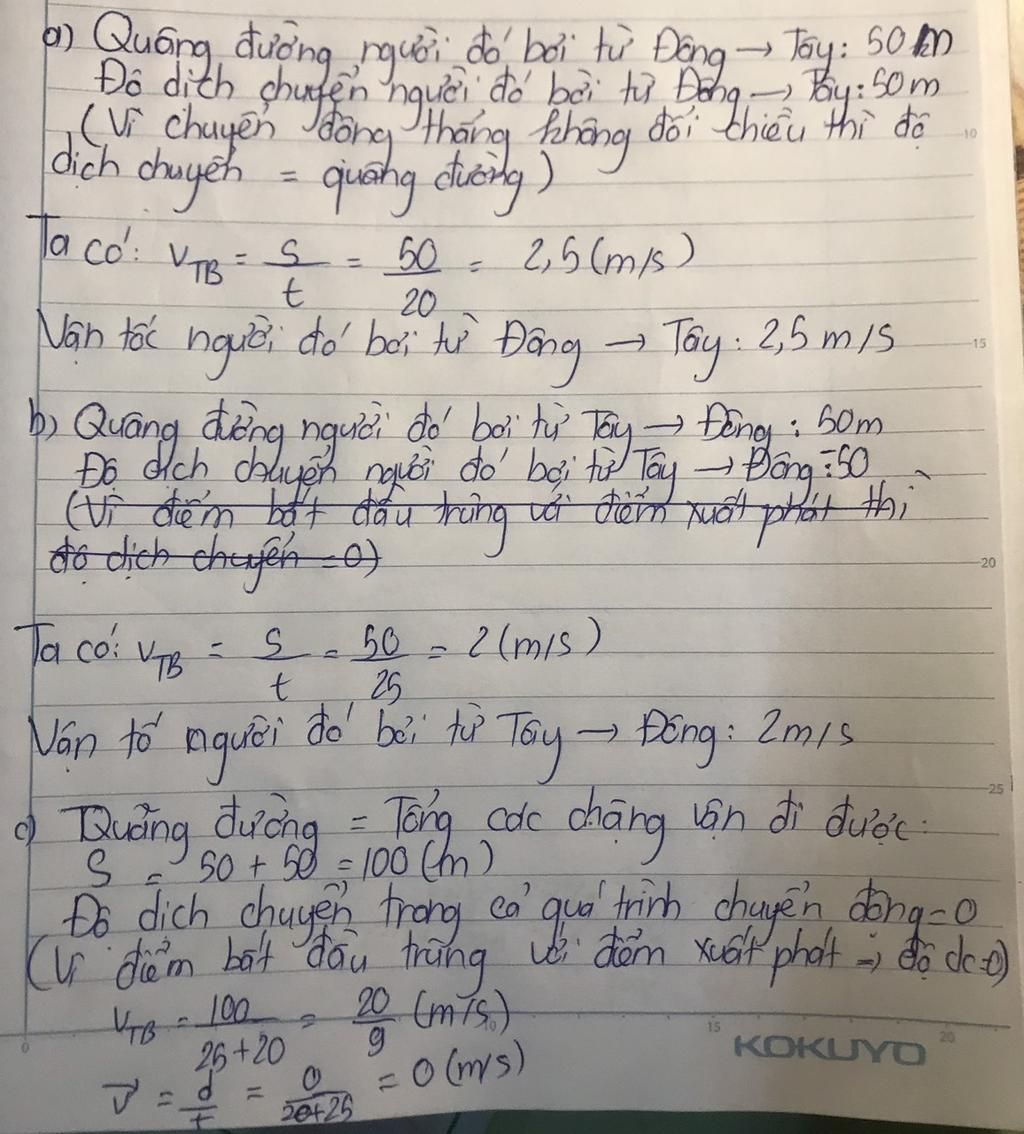 a) Quãng đường người đó bơi từ Đông → Tây: 50 m
Độ dịch chuyển người đó bơi từ Đông → Tây: 50 m
(Vì chuyển động thẳng không đổi chiều thì độ
dịch chuyển = quãng đường)
Ta có: v_TB = s/t = 50/20 = 2,5 (m/s)
Vận tốc người đó bơi từ Đông → Tây: 2,5 m/s
b) Quãng đường người đó bơi từ Tây → Đông: 50m
Độ dịch chuyển người đó bơi từ Tây → Đông: 50
(Vì điểm bắt đầu trùng với điểm xuất phát thì
độ dịch chuyển = 0)
Ta có: v_TB = s/t = 50/25 = 2 (m/s)
Vận tố người đó bơi từ Tây → Đông: 2m/s
c) Quãng đường = Tổng các chặng vận đi được:
S = 50 + 50 = 100 (m)
Độ dịch chuyển trong cả quá trình chuyển động = 0
(Vì điểm bắt đầu trùng với điểm xuất phát → độ dc = 0)
v_TB = 100/(25+20) = 20/9 (m/s)
v⃗ = d/t = 0/(20+25) = 0 (m/s)
KOKUYO
10
15
20
25
0
10
15
20